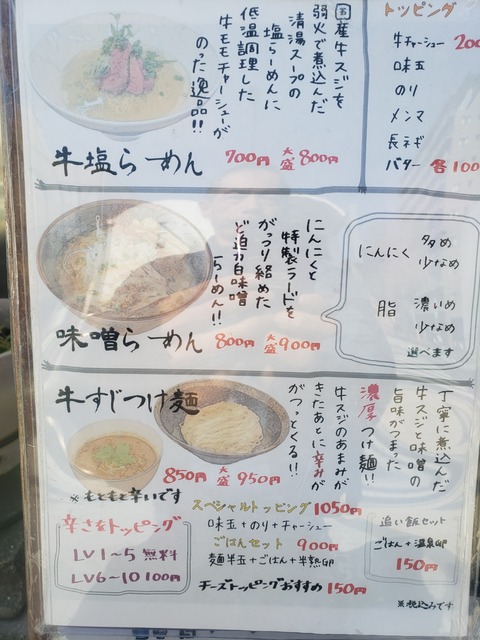 国産牛スジを
弱火で煮込んだ
清湯スープの
塩らーめんに
低温調理した
牛モモチャーシューが
のった逸品!!
牛塩らーめん 700円 大盛800円
トッピング
牛チャーシュー 200
味玉
のり
メンマ
長ネギ
バター 各100
にんにくと
特製ラードを
がっつり絡めた
ど迫力白味噌
らーめん!!
味噌らーめん 800円 大盛900円
にんにく 多め
少なめ
脂 濃いめ
少なめ
選べます
牛すじつけ麺
丁寧に煮込んだ
牛スジと味噌の
旨味がつまった
濃厚つけ麺!!
牛スジのあまみが
きたあとに辛みが
がつっとくる!!
850円 大盛950円
※もともと辛いです
辛さをトッピング
LV1~5 無料
LV6~10 100円
スペシャルトッピング 1050円
味玉+のり+チャーシュー
ごはんセット 900円
麺半玉+ごはん+半熟卵
チーズトッピングおすすめ 150円
追い飯セット
ごはん+温泉卵
150円
※税込みです